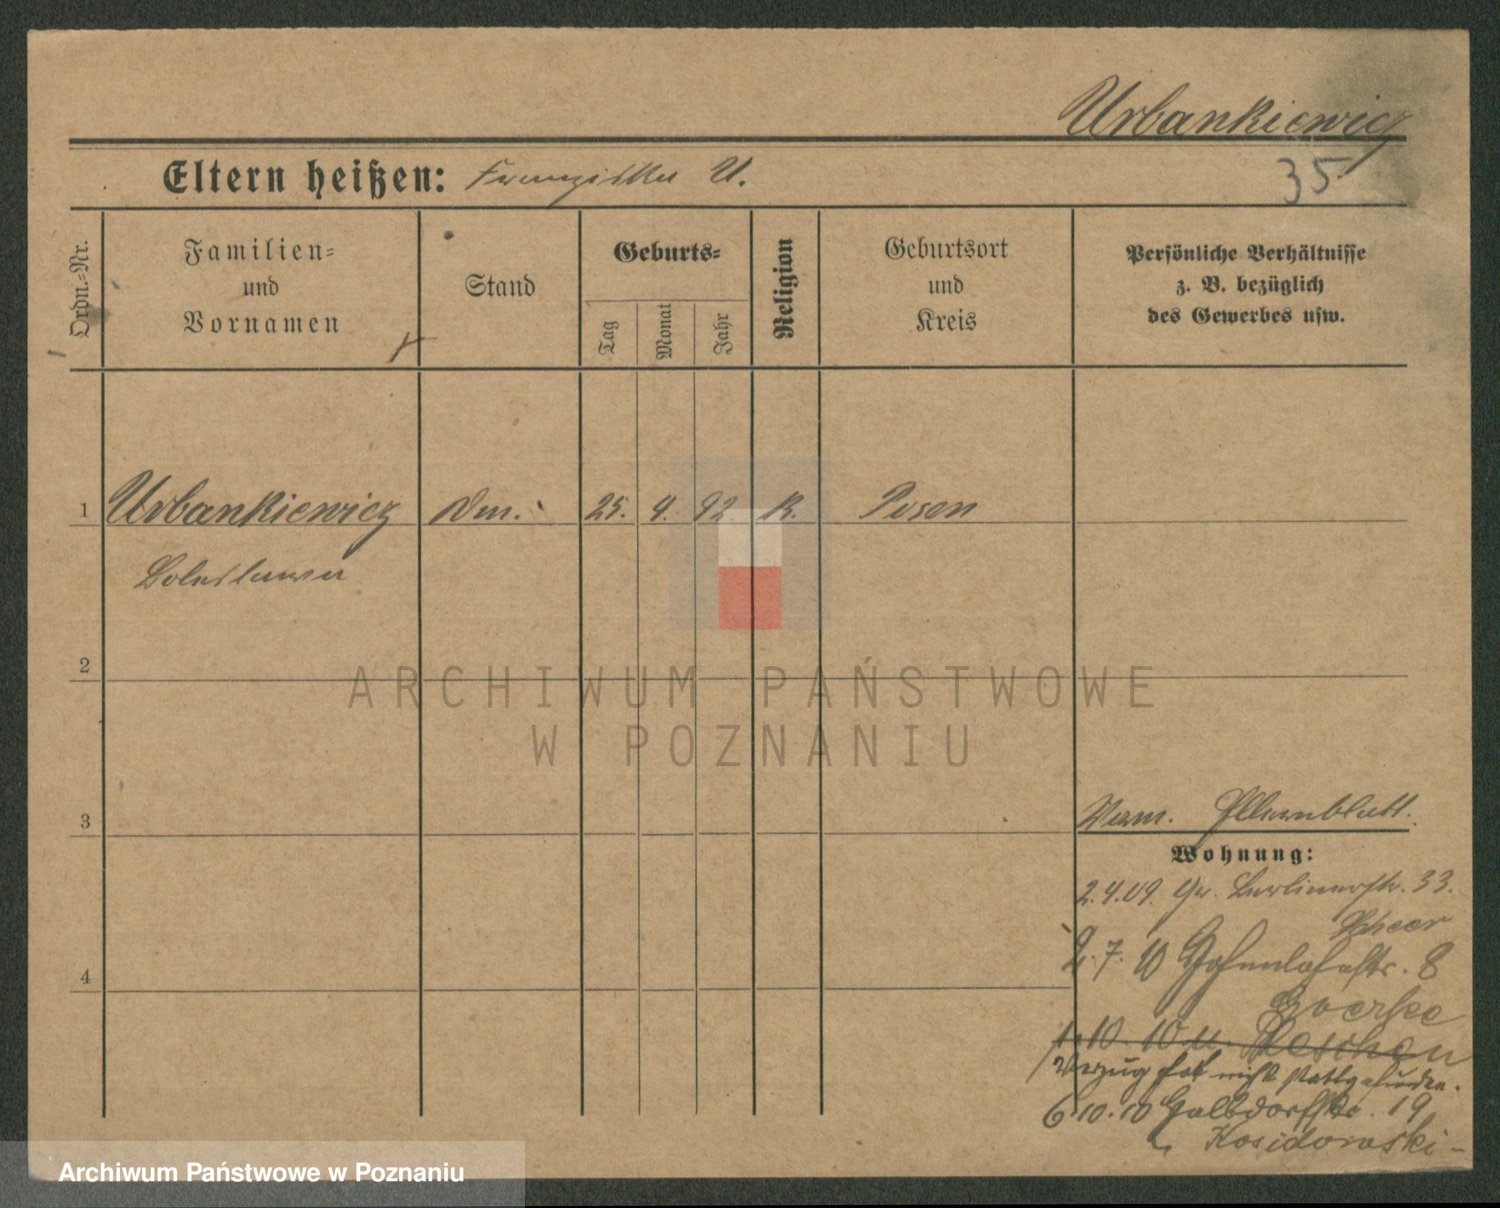 Urbankiewicz
35
Eltern heißen: Franziska U.
Ordn.-Nr.
Familien- und Vornamen
Stand
Geburts-
Tag
Monat
Jahr
Religion
Geburtsort und Kreis
Persönliche Verhältnisse z. B. bezüglich des Gewerbes usw.
1 Urbankiewicz 25. 4. 92 K. Posen
Boleslawa
2
3
4
ARCHIWUM PAŃSTWOWE
W POZNANIU
Elternblatt.
Wohnung:
2.4.09. Gr. Berlinerstr. 33.
Scheer
2.7.10 Hohenlohestr. 8
1.10.10 u. Pleschen
Verzug hat nicht stattgefunden.
6.10.10 Halbdorfstr. 19
Kosidowski
Archiwum Państwowe w Poznaniu